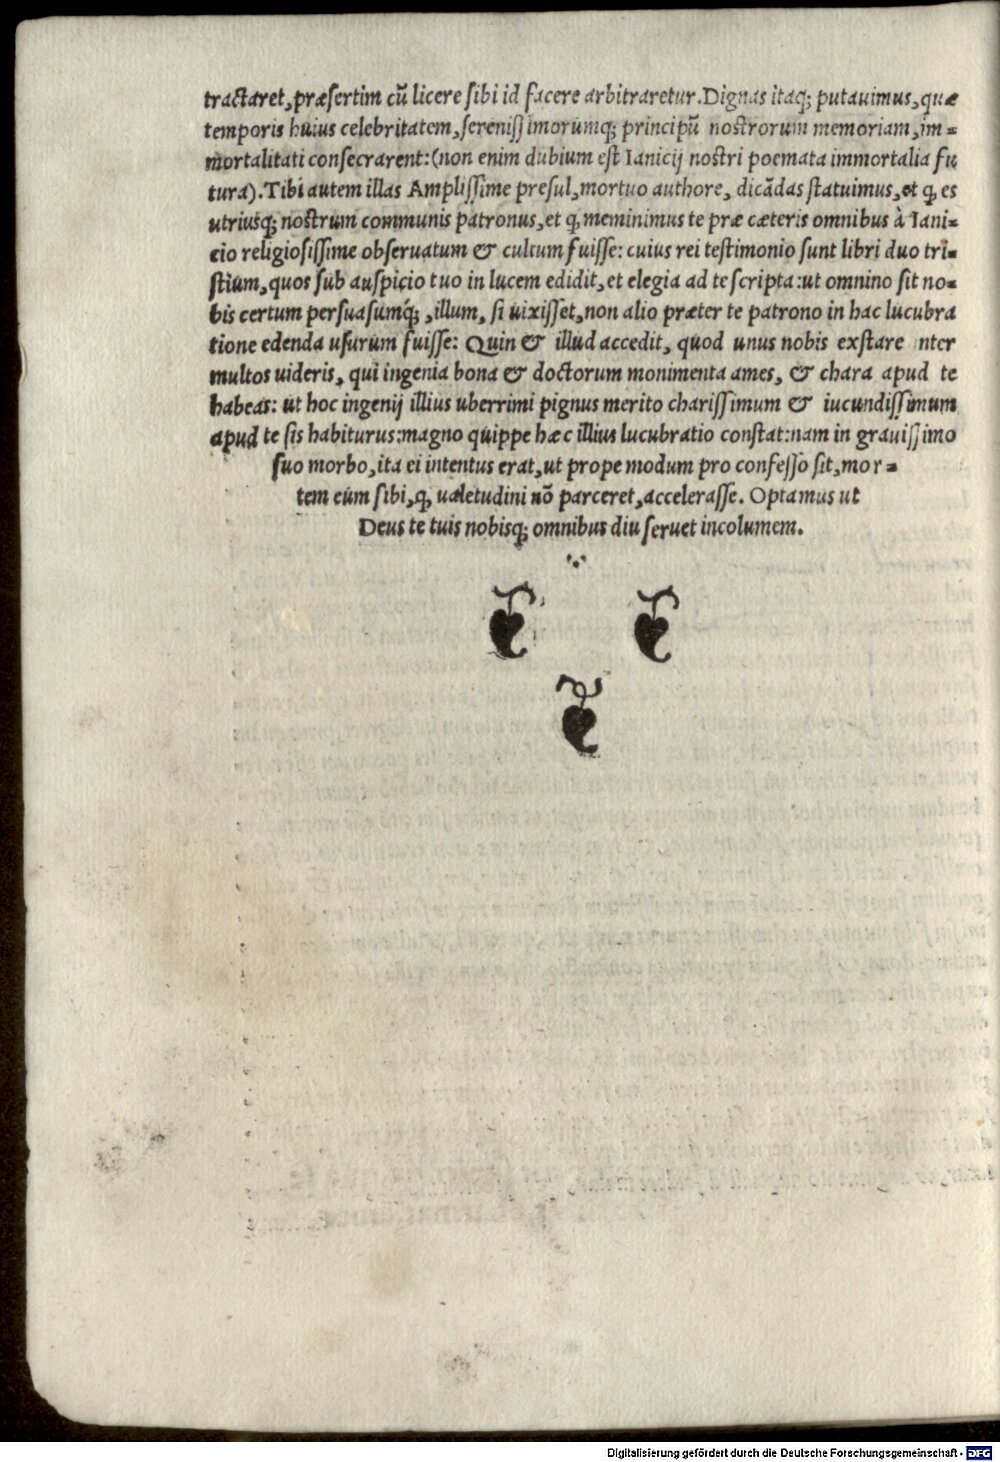 tractaret, præsertim cũ licere sibi id facere arbitraretur. Dignas itaq; putauimus, quæ
temporis huius celebritatem, serenissimorumq; principũ nostrorum memoriam, im=
mortalitati consecrarent: (non enim dubium est Ianicij nostri poemata immortalia fu
tura). Tibi autem illas Amplissime presul, mortuo authore, dicãdas statuimus, et q, es
utriusq; nostrum communis patronus, et q, meminimus te præ cæteris omnibus à Iani=
cio religiosissime obseruatum & cultum fuisse: cuius rei testimonio sunt libri duo tri=
stium, quos sub auspicio tuo in lucem edidit, et elegia ad te scripta: ut omnino sit no=
bis certum persuasumq́;, illum, si uixisset, non alio præter te patrono in hac lucubra
tione edenda usurum fuisse: Quin & illud accedit, quod unus nobis exstare nter
multos uideris, qui ingenia bona & doctorum monimenta ames, & chara apud te
habeas: ut hoc ingenij illius uberrimi pignus merito charissimum & iucundissimum
apud te sis habiturus: magno quippe hæc illius lucubratio constat: nam in grauissimo
suo morbo, ita ei intentus erat, ut prope modum pro confesso sit, mor=
tem eum sibi, q, ualetudini nõ parceret, accelerasse. Optamus ut
Deus te tuis nobisq; omnibus diu seruet incolumem.
Digitalisierung gefördert durch die Deutsche Forschungsgemeinschaft - DFG